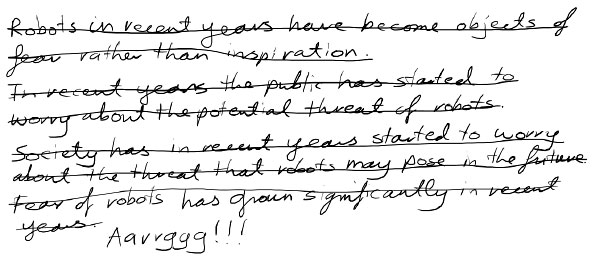 Robots in recent years have become objects of
fear rather than inspiration.
In recent years the public has started to
worry about the potential threat of robots.
Society has in recent years started to worry
about the threat that robots may pose in the future
Fear of robots has grown significantly in recent
years.
Aarrggg!!!